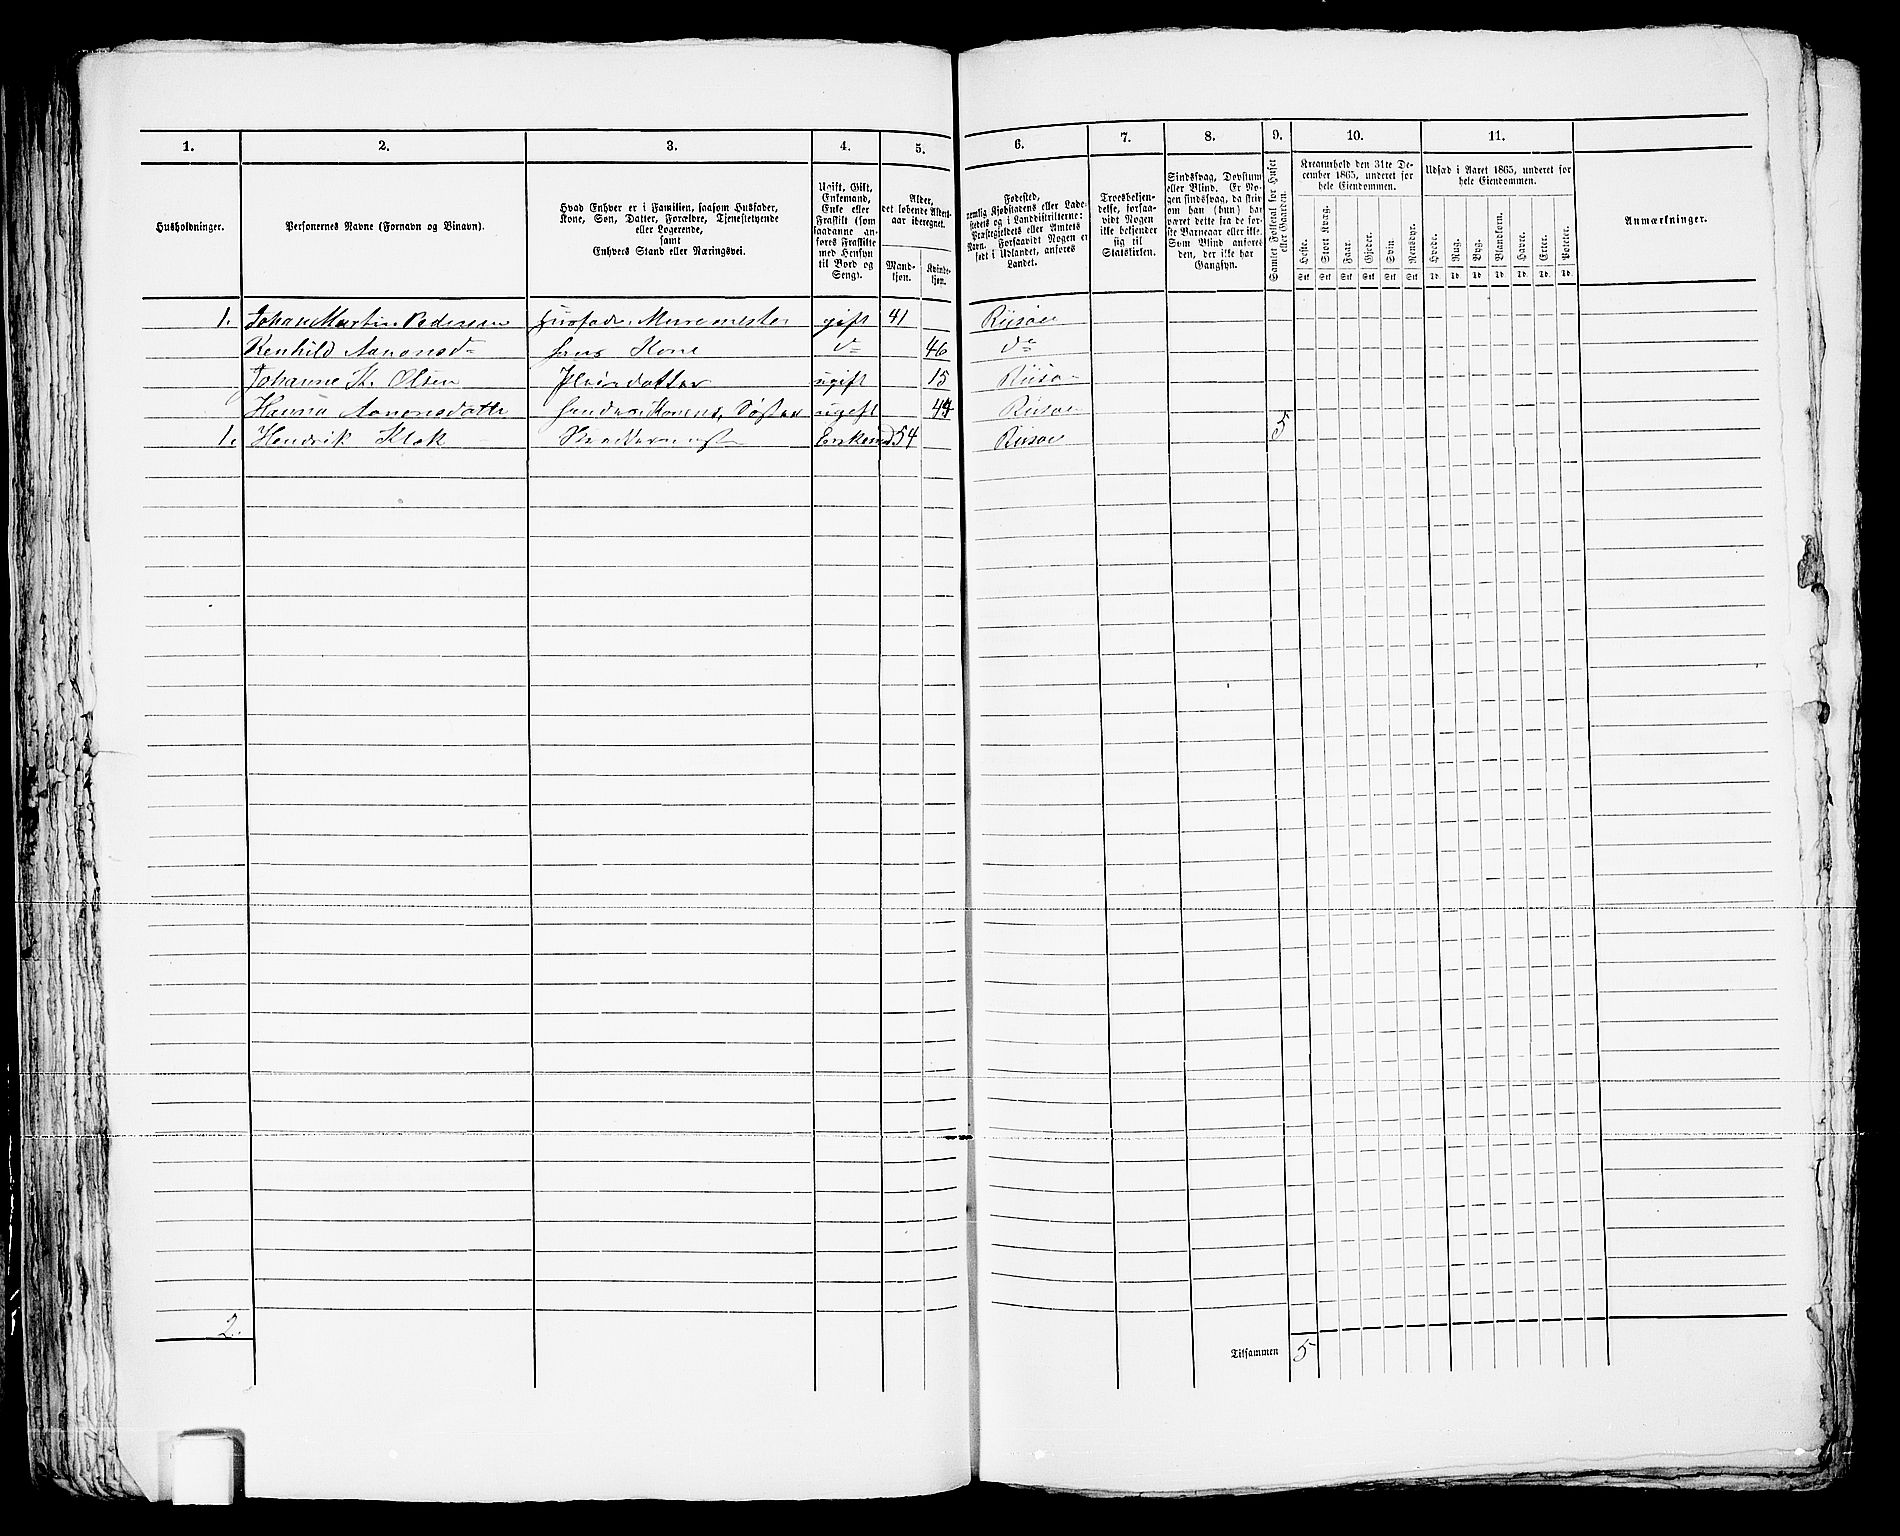 1. 2. 3. 4. 5. 6. 7. 8. 9. 10. 11.
Husholdninger.
Personernes Navne (Fornavn og Binavn).
Hvad Enhver er i Familien, saasom Husfader,
Kone, Søn, Datter, Forældre, Tjenestetyende
eller Logerende,
samt
Enhvers Stand eller Næringsvei.
Ugift, Gift,
Enkemand,
Enke eller
Fraskilt (som
saadanne an-
føres Fraskilte
med Hensyn
til Bord og
Seng).
Alder,
det løbende Alders-
aar iberegnet.
Mand-
kjøn.
Kvinde-
kjøn.
Fødested,
nemlig Kjøbstadens eller Lade-
stedets og i Landdistrikterne:
Præstegjeldets eller Amtets
Navn. Forsaavidt Nogen er
født i Udlandet, anføres
Landet.
Troesbekjen-
delse, forsaa-
vidt Nogen
ikke bekjender
sig til
Statskirken.
Sindssvag, Døvstum
eller Blind. Er No-
gen sindssvag, da skriv
om han (hun) har
været dette fra de før-
ste Barneaar eller ikke.
Som Blind anføres
den, der ikke har
Gangsyn.
Samlet Folketal for Huset
eller Gaarden.
Kreaturhold den 31te De-
cember 1865, underet for
hele Eiendommen.
Heste. Stort Kvæg. Faar. Gjeder. Svin. Rensdyr.
Stk Stk Stk Stk Stk Stk
Udsæd i Aaret 1865, underet for
hele Eiendommen.
Hvede. Rug. Byg. Blandkorn. Havre. Erter. Poteter.
Td. Td. Td. Td. Td. Td. Td.
Anmærkninger.
1. Johan Martin Pedersen Husfader Muremester gift 41 Riisøer
Renhild Aanonsd= hans Kone do 46 do
Johanne K. Olsen Pleiedatter ugift 15 Riisøer
Hanna Aanonsdatter Konens Søster ugift Riisøer
1. Hendrik Klok Enkemd 54 Riisøer 5
2.
Tilsammen 5